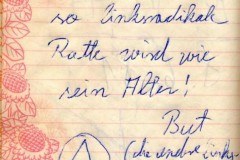 so linksradikale
Ratte wird wie
sein Alter!
But
(die andre links-